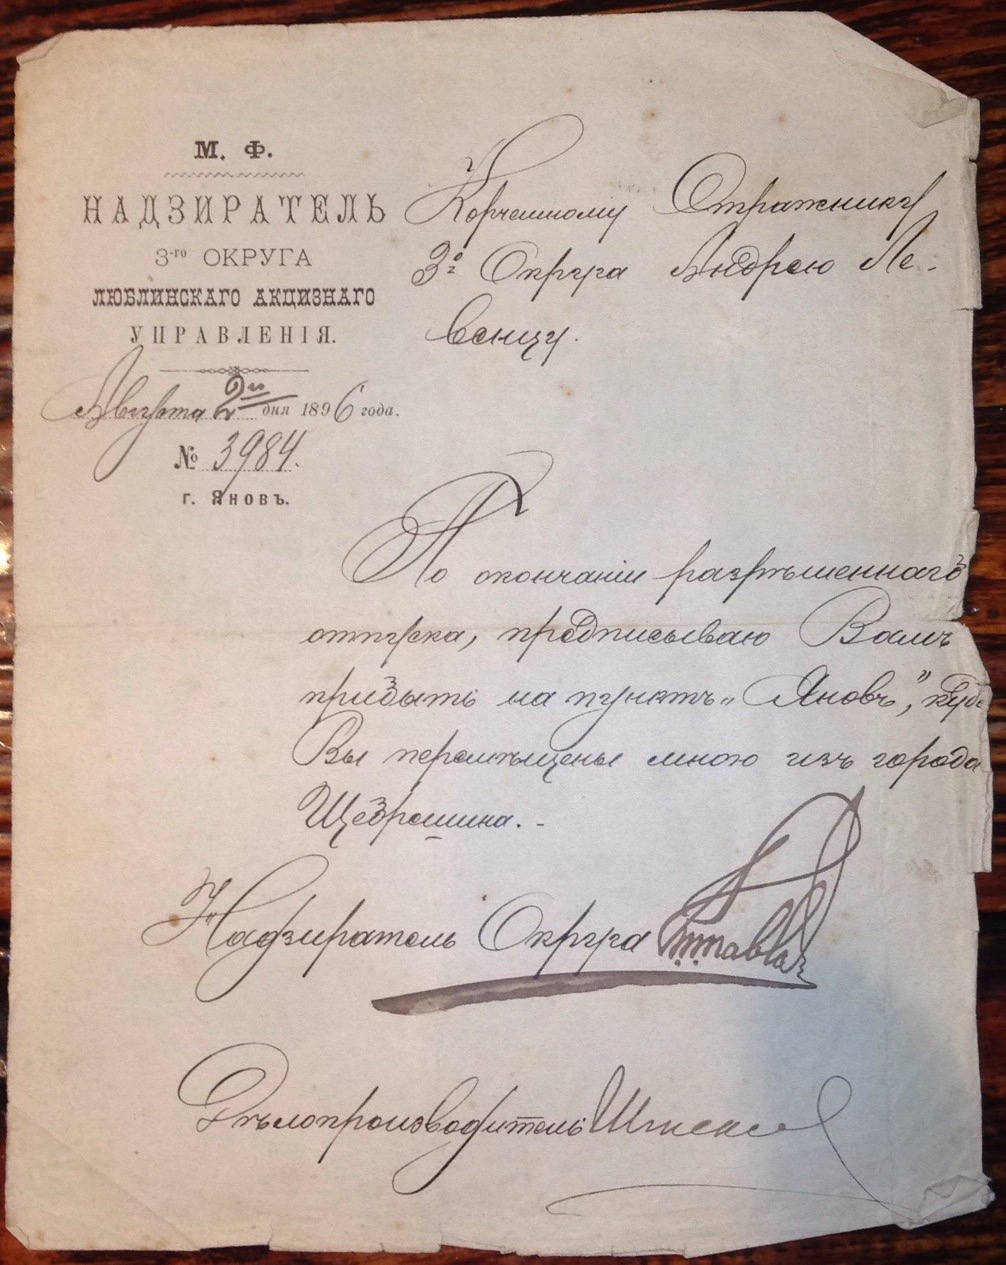 М. Ф.
НАДЗИРАТЕЛЬ
3-го ОКРУГА
ЛЮБЛИНСКАГО АКЦИЗНАГО
УПРАВЛЕНІЯ.
Августа 2го дня 1896 года.
№ 3984.
г. Яновъ.
Корчемному Стражнику
3го Округа Андрею Ле-
венцу.
По окончаніи разрѣшеннаго
отпуска, предписываю Вамъ
прибыть на пунктъ „Яновъ", куда
Вы перемѣщены мною изъ города
Щебрешина. -
Надзиратель Округа
Дѣлопроизводитель